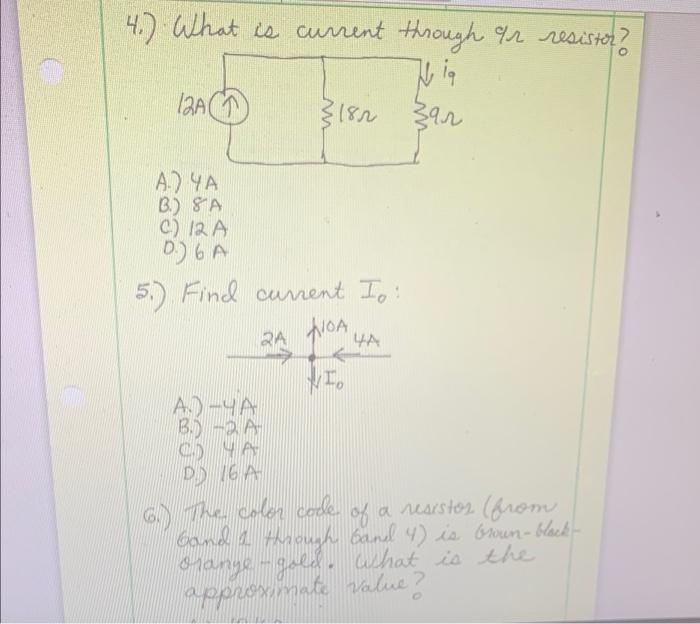 4.) What is current through 9Ω resistor?
i9
12A
18Ω
9Ω
A.) 4A
B.) 8A
C.) 12A
D.) 6A
5.) Find current Io:
2A
10A
4A
Io
A.) -4A
B.) -2A
C.) 4A
D.) 16A
6.) The color code of a resistor (from
band 1 through band 4) is brown-black-
orange-gold. What is the
approximate value?